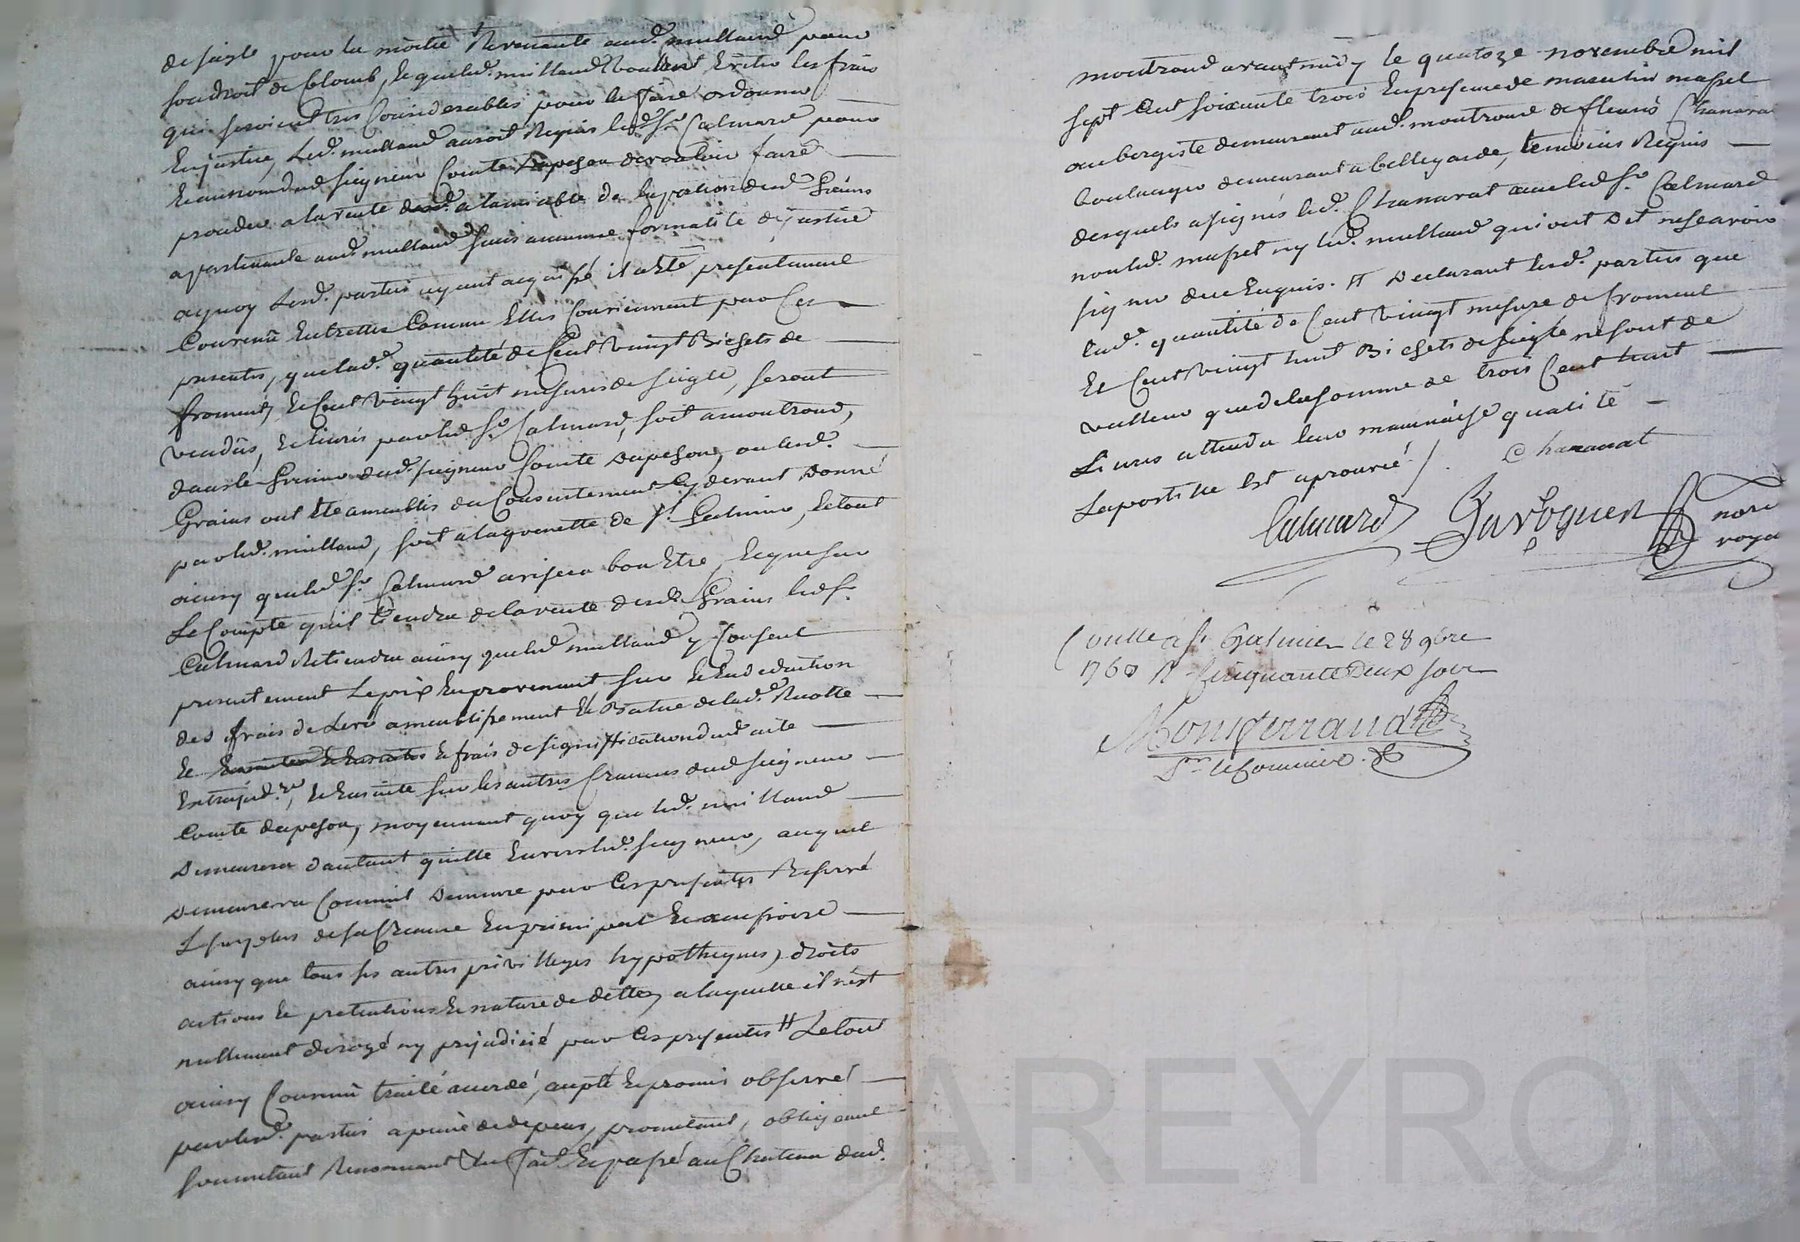 de seigle pour la moitié Revenante aud. milland pour
son droit de Colomb, lequel d. milland voulant Eviter les frais
qui seroient tres Considerables pour le faire ordonner
En justice, Led. milland auroit Requis led. Sr. Calmard pour
Et au nom dud seigneur Comte Dapchon de vouloir faire
proceder a la vente a lamiable de la portion desd. Grains
apartenante aud. milland sans aucune formalité de justice
aquoy Lesd. parties ayant acquiessé il a Eté presentement
Convenu Entrelles Comme Elles Conviennent par Ces
presentes, que lad. quantité de Cent vingt Bichets de
froment, Et Cent vingt huit mesures de seigle, seront
vendus, Et livrés par led Sr. Calmard, soit a montrond,
dans le Grenier dud. seigneur Comte Dapchon, ou lesd.
Grains ont Eté ameublis du Consentement Cy devant Donné
par led. milland, soit a la grenette de St. Galmier, Le tout
ainsy que led Sr. Calmard avisera bon Etre, Et que sur
Le Compte quil tiendra de la vente desd. Grains led Sr.
Calmard Retiendra ainsy que led milland y Consent
presentement Le prix En provenant sur Et En deduction
des frais de Levé ameublissement Et Batue de lad. Recolte
Et frais de signiffication dud acte
Extrajud.re, Et Ensuite sur les autres Creances dud seigneur
Comte dapchon, moyennant quoy que led. milland
Demeurera dautant quitte Envers led. seigneur, auquel
Demeurera Comme il Demeure par Ces presentes Reservé
Le surplus de sa Creance En principal Et accessoire
ainsy que tous ses autres privilleges hypotheques, droits
actions Et pretentions Et nature de dettes, a laquelle il n'est
nullement derogé ny prejudicié par Ces presentes # Le tout
ainsy Convenu traité accordé, accepté Et promis observer
par lesd. parties a peine de depens, promettant, obligeant
soumettant Renonceant &c. fait Et passé au Chateau dud.
montrond avant midy le quatoze novembre mil
sept Cent soixante trois En presence de masculin massel
aubergiste demeurant aud. montrond de fleuris Chanavat
boulanger demeurant a bellegarde, temoins Requis
desquels a signés led. Chanavat avec led Sr. Calmard
non led. massel ny led. milland qui ont Dit ne scavoir
signer de ce Enquis. # Declarant lesd. parties que
lad. quantité de Cent vingt mesure de froment
Et Cent vingt huit Bichets de seigle ne sont de
valleur que de la somme de trois Cent huit
Livres attendu leur mauvaise qualité
La postille Est aprouvé /. Chanavat
Calmard
nore
roya
Conllé a St. Galmier le 28 9bre
1763 R Cinquante Deux sols
Monferrand
Pr. le Commis.
CHAREYRON